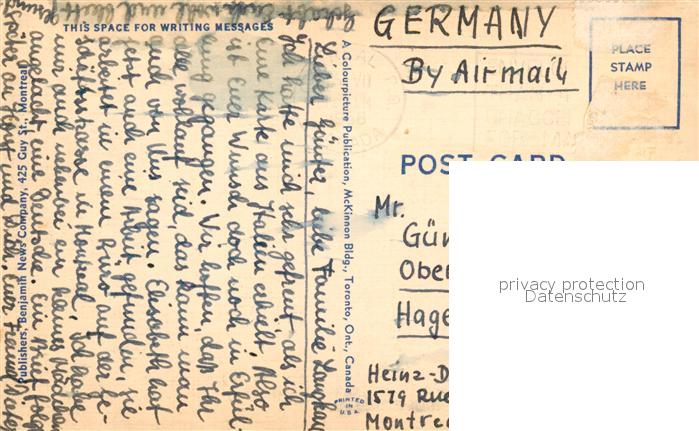 THIS SPACE FOR WRITING MESSAGES
Lieber Günter, liebe Familie
Ich hatte mich sehr gefreut, als ich
eine Karte aus Italien erhielt. Also
ist Euer Wunsch doch noch in Erfül-
lung gegangen. Wir hoffen, daß Ihr
alle wohlauf seid, das kann man
auch von uns sagen. Elisabeth hat
jetzt auch eine Arbeit gefunden, sie
arbeitet in einem Büro auf der
in Montreal. Ich habe
mir auch nebenbei ein kleines Mädchen
angelacht, eine Deutsche. Ein Brief folgt
später an Horst und Dich. Euer Heinz
Publishers, Benjamin News Company, 425 Guy St., Montreal
A Colourpicture Publication, McKinnon Bldg., Toronto, Ont., Canada
PRINTED IN U.S.A.
GERMANY
By Airmail
PLACE
STAMP
HERE
POST CARD
Mr.
Gün
Ober
Hage
Heinz-D
1579 Rue
Montre
privacy protection
Datenschutz